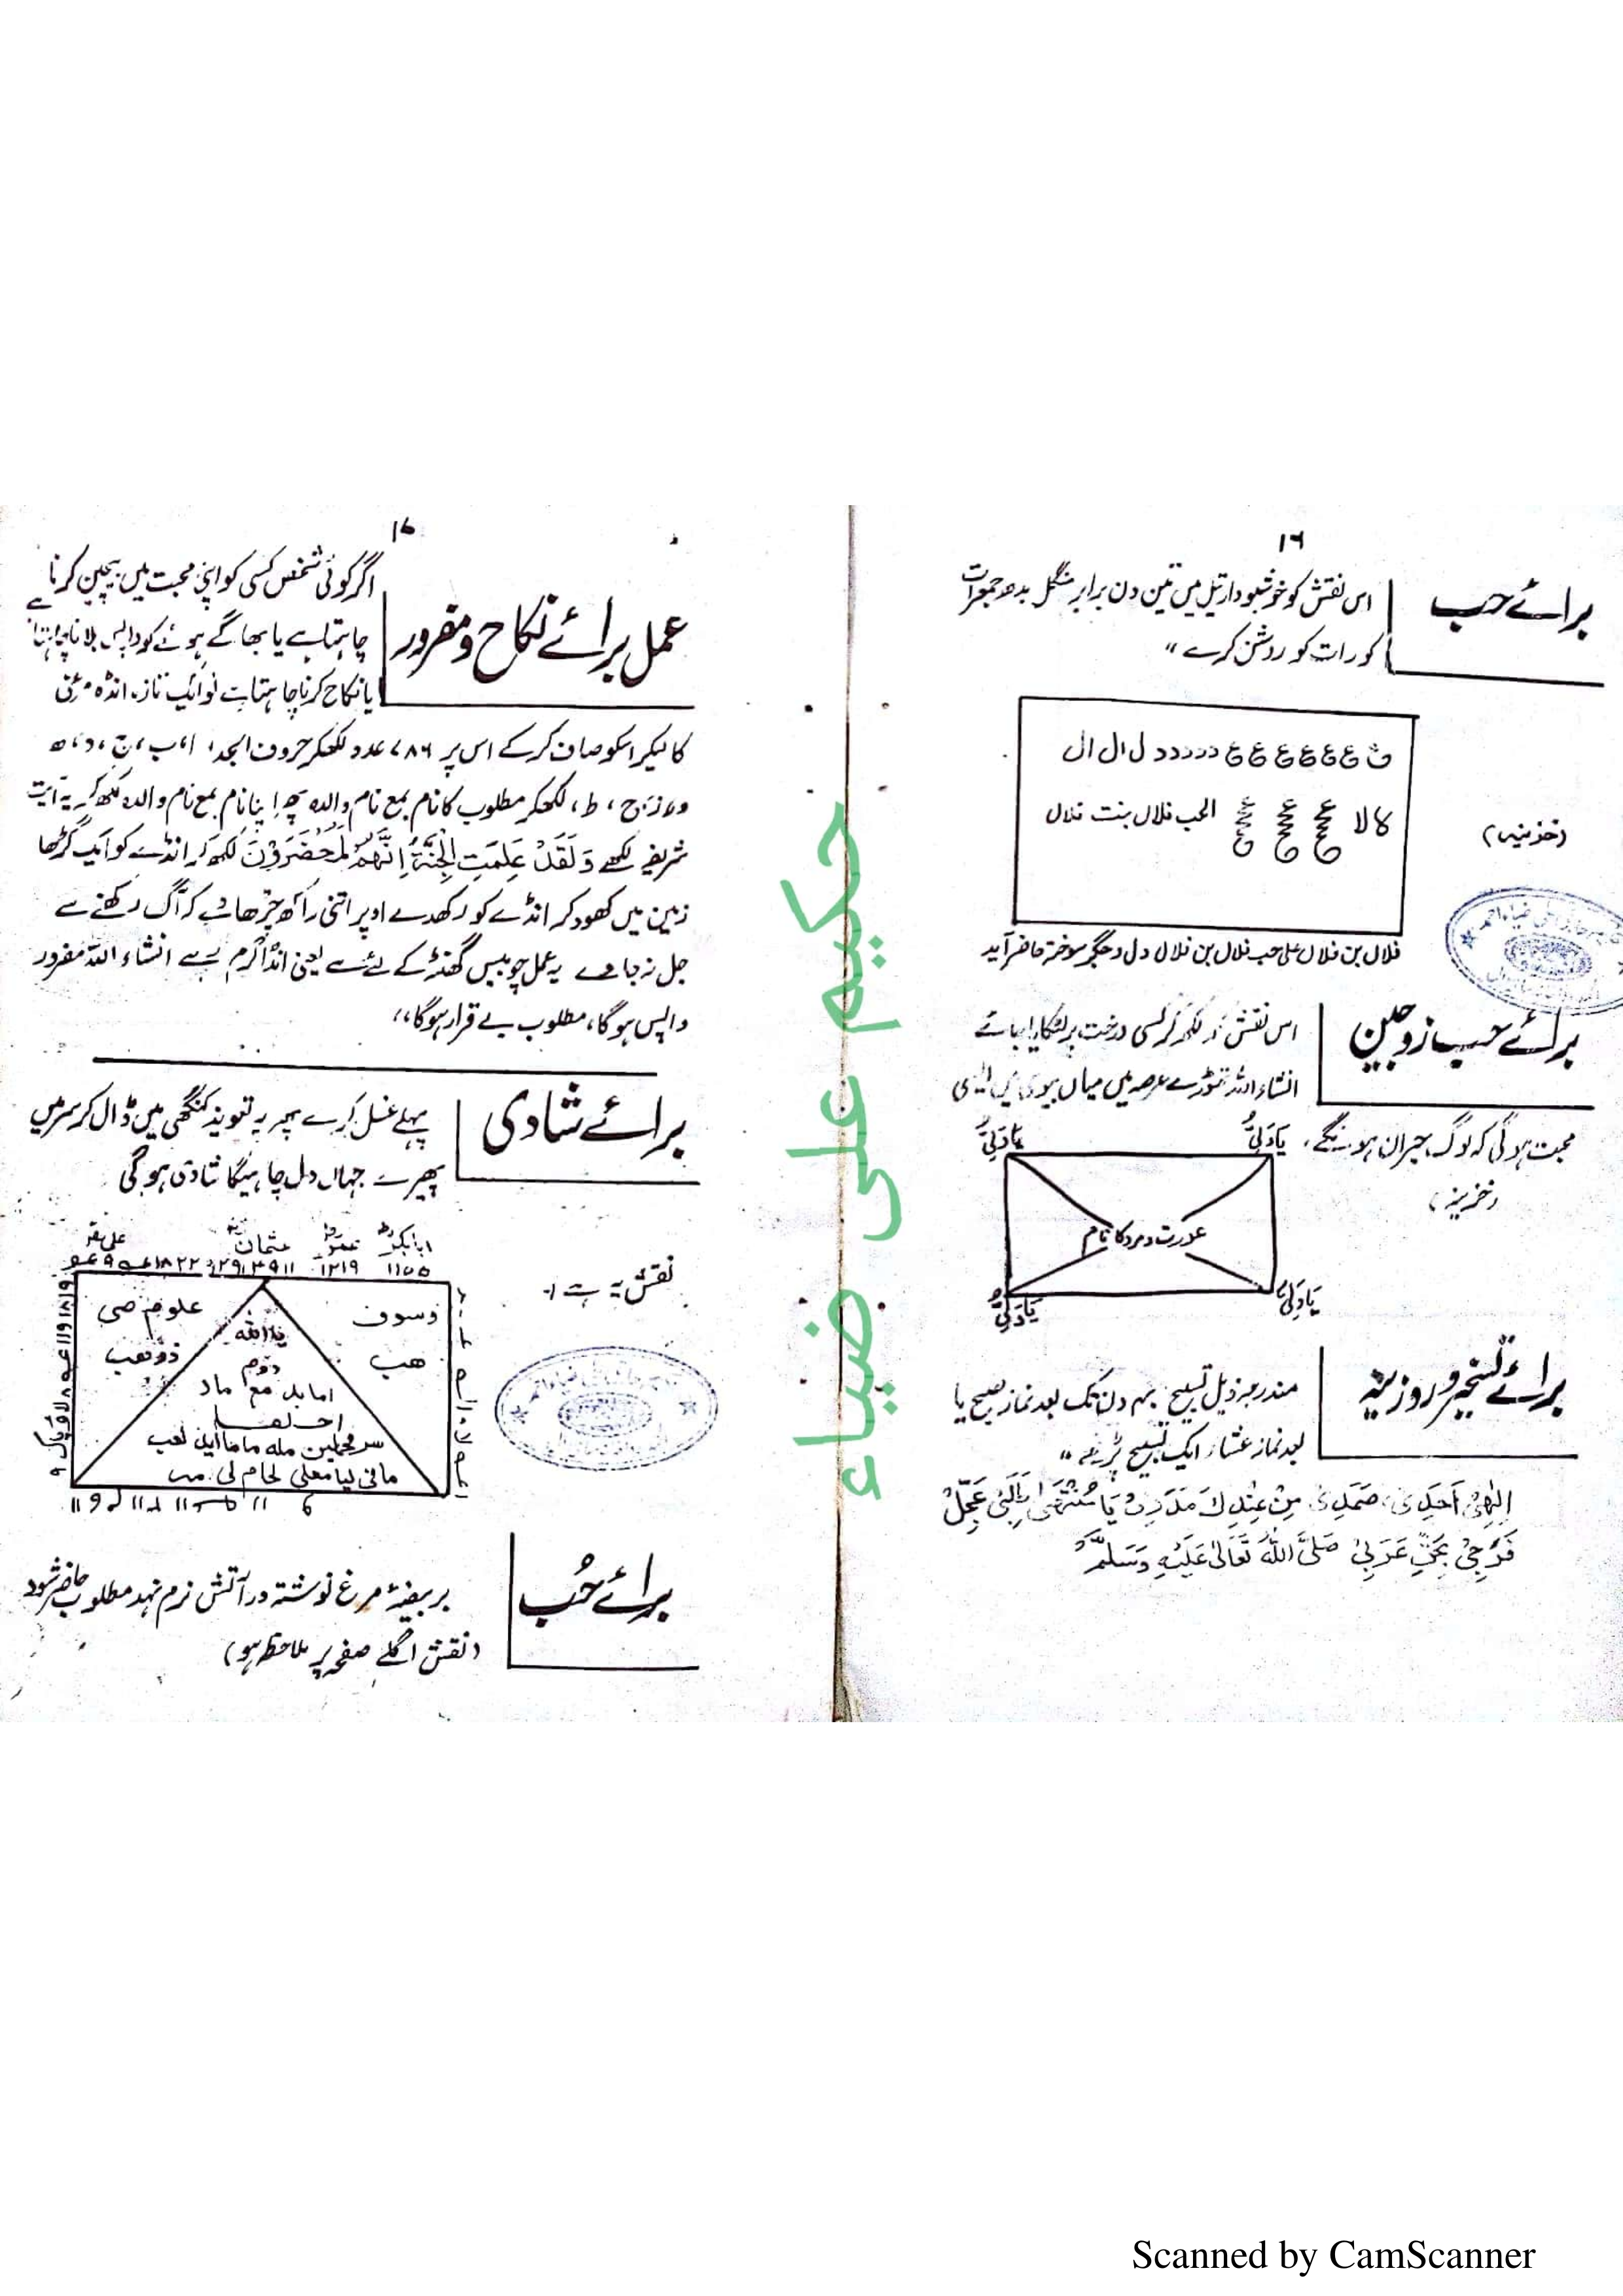 ۱۶
برائے حب
اس نقش کو خوشبودار تیل میں تین دن برابر منگل بدھ جمعرات
کو رات کو روشن کرے
ل ال ال
کالا
الحب فلاں بنت فلاں
(خزینہ)
فلاں بن فلاں علی حب فلاں بن فلاں دل و جگر سوختہ حاضر آید
برائے حب زوجین
اس نقش کو لکھ کر کسی درخت پر لٹکایا جائے
انشاء اللہ تھوڑے عرصہ میں میاں بیوی میں ایسی
محبت ہوگی کہ لوگ حیران ہونگے،
(خزینہ)
یَا وَلِیُّ
یَا وَلِیُّ
عورت و مرد کا نام
یَا وَلِیُّ
یَا وَلِیُّ
برائے تسخیر و روزینہ
مندرجہ ذیل تسبیح ۴۰ دن تک بعد نماز صبح یا
بعد نماز عشاء ایک تسبیح پڑھے
اِلٰهِیْ اَحَدِیْ، صَمَدِیْ مِنْ عِنْدِكَ مَدَدِیْ یَا عَجِّلْ
فَرَجِیْ بِحَقِّ عَرَبِیْ صَلَّى اللّٰهُ تَعَالٰى عَلَیْهِ وَسَلَّمَ
۱۷
عمل برائے نکاح و مفرور
اگر کوئی شخص کسی کو اپنی محبت میں بیچین کرنا
چاہتا ہے یا بھاگے ہوئے کو واپس بلانا چاہتا ہے
یا نکاح کرنا چاہتا ہے تو ایک تازہ انڈہ مرغی
کا لیکر اسکو صاف کرکے اس پر ۷۸۶ عدد لکھکر حروف ابجد ا، ب، ج، د، ھ
و، ز، ح، ط، لکھکر مطلوب کا نام بمع نام والدہ پھر اپنا نام بمع نام والدہ لکھ کر یہ آیت
شریف لکھے وَلَقَدْ عَلِمَتِ الْجِنَّةُ اِنَّهُمْ لَمُحْضَرُوْنَ لکھ کر انڈے کو ایک گڑھا
زمین میں کھود کر انڈے کو رکھدے اوپر اتنی راکھ چڑھائے کہ آگ رکھنے سے
جل نہ جاوے یہ عمل چوبیس گھنٹے کے لئے ہے یعنی انڈا گرم رہے انشاء اللہ مفرور
واپس ہوگا، مطلوب بے قرار ہوگا،،
برائے شادی
پہلے غسل کرے پھر یہ تعویذ کنگھی میں ڈال کر سر میں
پھیرے جہاں دل چاہیگا شادی ہوگی
نقش یہ ہے :-
ابابکر عمر عثمان علی
۱۲۱۹
وسوف
ھب
علوم صی
ذوھب
یا اللہ
دوم
برائے حُب
بر بیضۂ مرغ نوشتہ در آتش نرم نہد مطلوب حاضر شود
(نقش اگلے صفحہ پر ملاحظہ ہو)
حکیم علی ضیاء
Scanned by CamScanner